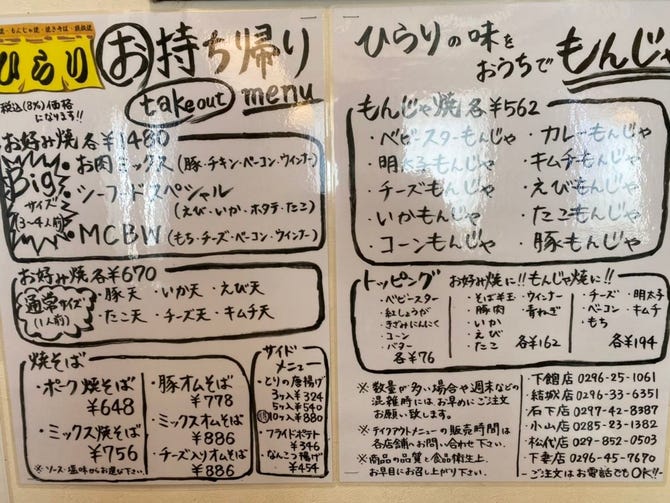 焼・もんじゃ焼・焼きそば・鉄板焼
ひらり
お持ち帰り
takeout menu
税込(8%)価格
になります!!
お好み焼 各¥1480
Bigサイズ
(3〜4人前)
お肉ミックス(豚・チキン・ベーコン・ウインナー)
シーフードスペシャル
(えび・いか・ホタテ・たこ)
MCBW(もち・チーズ・ベーコン・ウインナー)
お好み焼 各¥670
通常サイズ
(1人前)
・豚天 ・いか天 ・えび天
・たこ天 ・チーズ天 ・キムチ天
焼そば
・ポーク焼そば
¥648
・ミックス焼そば
¥756
※ソース・塩味からお選び下さい。
・豚オムそば
¥778
・ミックスオムそば
¥886
・チーズ入りオムそば
¥886
サイドメニュー
・とりの唐揚げ
3ヶ入¥324
5ヶ入¥540
10ヶ入¥880
・フライドポテト
¥346
・なんこつ揚げ
¥454
ひらりの味を
おうちで もんじゃ
もんじゃ焼 各¥562
・ベビースターもんじゃ ・カレーもんじゃ
・明太子もんじゃ ・キムチもんじゃ
・チーズもんじゃ ・えびもんじゃ
・いかもんじゃ ・たこもんじゃ
・コーンもんじゃ ・豚もんじゃ
トッピング お好み焼に!!もんじゃ焼に!!
・ベビースター
・紅しょうが
・きざみにんにく
・コーン
・バター
各¥76
・そば半玉 ・ウインナー
・豚肉 ・青ねぎ
・いか
・えび
・たこ 各¥162
・チーズ ・明太子
・ベーコン ・キムチ
・もち
各¥194
※数量が多い場合や週末などの
混雑時には お早めにご注文
お願い致します。
※テイクアウトメニューの販売時間は
各店舗へお問い合わせ下さい。
※商品の品質と食品衛生上、
お早目にお召し上がり下さい。
・下館店 0296-25-1061
・結城店 0296-33-6351
・石下店 0297-42-8387
・小山店 0285-23-1382
・松代店 029-852-0503
・下妻店 0296-45-7670
-ご注文はお電話でもOK!!-